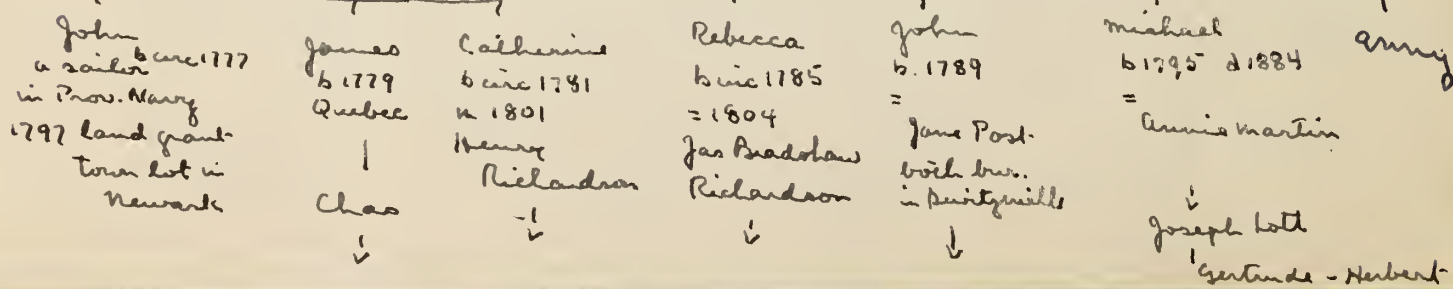 John
b circ 1777
a sailor
in Prov. Navy
1797 land grant
town lot in
Newark
James
b 1779
Quebec
Chas
Catherine
b circ 1781
m 1801
Henry
Richardson
Rebecca
b circ 1785
= 1804
Jas Bradshaw
Richardson
John
b. 1789
=
Jane Post
both bur.
in
Michael
b 1795 d 1884
=
Annie Martin
Joseph Lott
Gertrude - Herbert